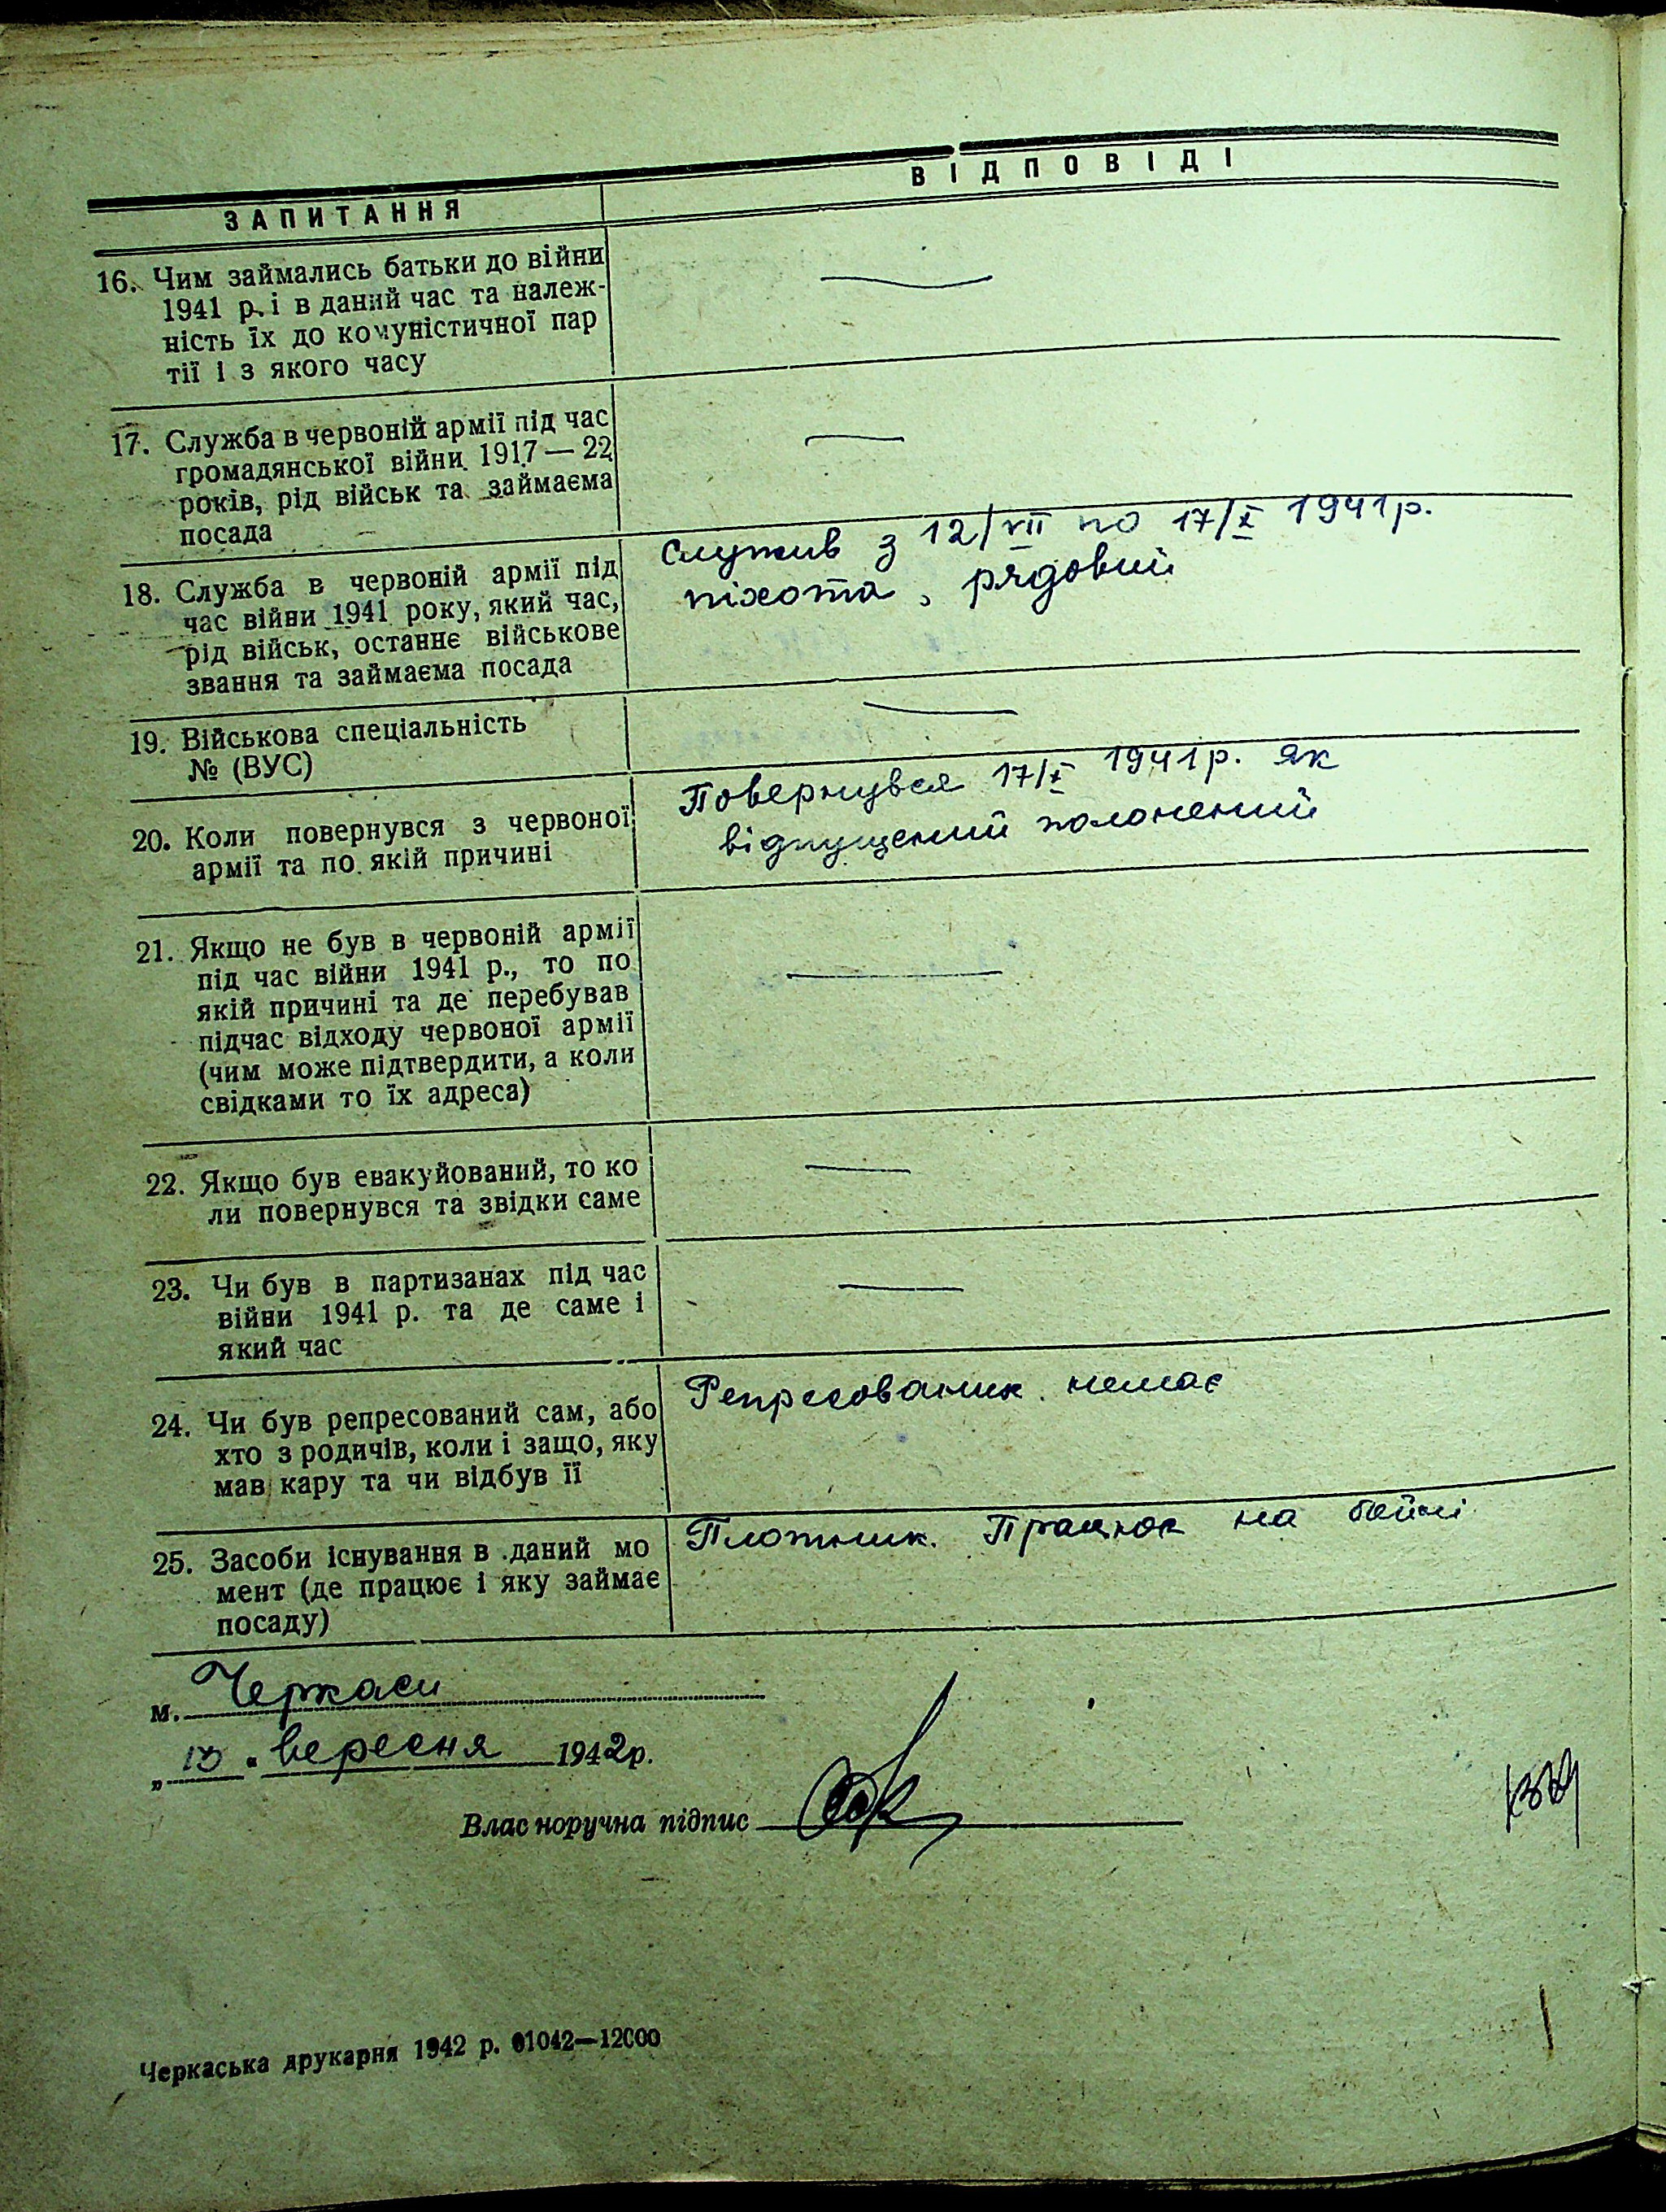 ЗАПИТАННЯ
ВІДПОВІДІ
16. Чим займались батьки до війни
1941 р. і в даний час та належ-
ність їх до комуністичної пар
тії і з якого часу
17. Служба в червоній армії під час
громадянської війни 1917 — 22
років, рід військ та займаєма
посада
18. Служба в червоній армії під
час війни 1941 року, який час,
рід військ, останнє військове
звання та займаєма посада
Служив з 12/VII по 17/X 1941 р.
піхота, рядовий
19. Військова спеціальність
№ (ВУС)
20. Коли повернувся з червоної
армії та по якій причині
Повернувся 17/X 1941 р. як
відпущений полонений
21. Якщо не був в червоній армії
під час війни 1941 р., то по
якій причині та де перебував
підчас відходу червоної армії
(чим може підтвердити, а коли
свідками то їх адреса)
22. Якщо був евакуйований, то ко
ли повернувся та звідки саме
23. Чи був в партизанах під час
війни 1941 р. та де саме і
який час
24. Чи був репресований сам, або
хто з родичів, коли і защо, яку
мав кару та чи відбув її
Репресованих немає
25. Засоби існування в даний мо
мент (де працює і яку займає
посаду)
Плотник. Працює на бойні
м. Черкаси
" вересня 1942 р.
Власноручна підпис
Черкаська друкарня 1942 р. 01042—12000